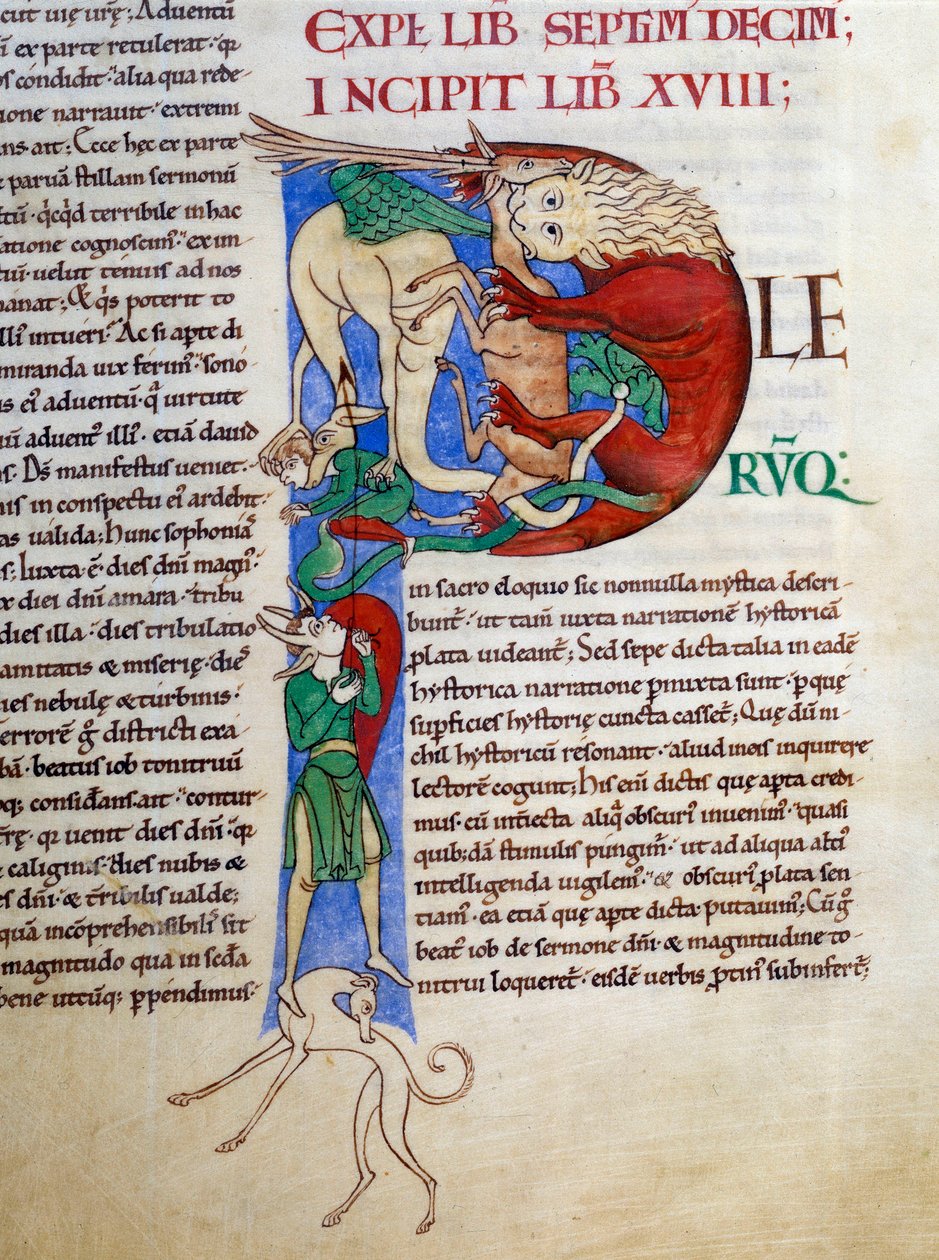 cut uię urę; Aduentū
ī ex parte retulerat· qr
os condidit· alia qua rede
tione narrauit· extremi
ans· ait; Ecce hęc ex parte
paruā stillam sermonū
qcqd terribile in hac
atione cognoscim· ex im
uelut tenuis ad nos
manat; & qs poterit to
intueri· Ac si apte di
miranda uix ferim· sono
is ei aduentū· q uirtute
aduent illi· etiā dauid
Ds manifestus ueniet·
nis in conspectu ei ardebit·
as ualida; Hunc sophonias
Iuxta ē dies dñi magn·
x diei dñi amara· tribu
dies illa· dies tribulatio
amitatis & miserię· dies
ies nebulę & turbinis·
errorē g districti exa
beatus iob tonitruū
oq; considans· ait· contur
qr uenit dies dñi· qr
caliginis· dies nubis &
es dñi· & tribilis ualde;
quā incōprehensibilis sit
magnitudo qua in scda
bene utcūq; ppendimus·
EXPL LIB SEPTIM DECIM;
INCIPIT LIB XVIII;
PLE
RVQ:
in sacro eloquio sic nonnulla mystica descri-
bunt· ut tam iuxta narrationē hystoricā
plata uideant; Sed sepe dicta talia in eadē
hystorica narratione pmixta sunt· p quę
supficies hystorię cuncta casset; Quę dū ni-
chil hystoricū resonant· aliud in eis inquirere
lectorē cogunt; His eni dictis quę apta credi-
mus· cū intiecta aliq obscuri inuenim· quasi
quib;dā stimulis pungim· ut ad aliqua alti
intelligenda uigilem· & obscuri plata sen-
tiam· ea etiā quę apte dicta putauim; Cū g
beat iob de sermone dñi· & magnitudine to-
nitrui loqueret· eisdē uerbis ptin subinfert;